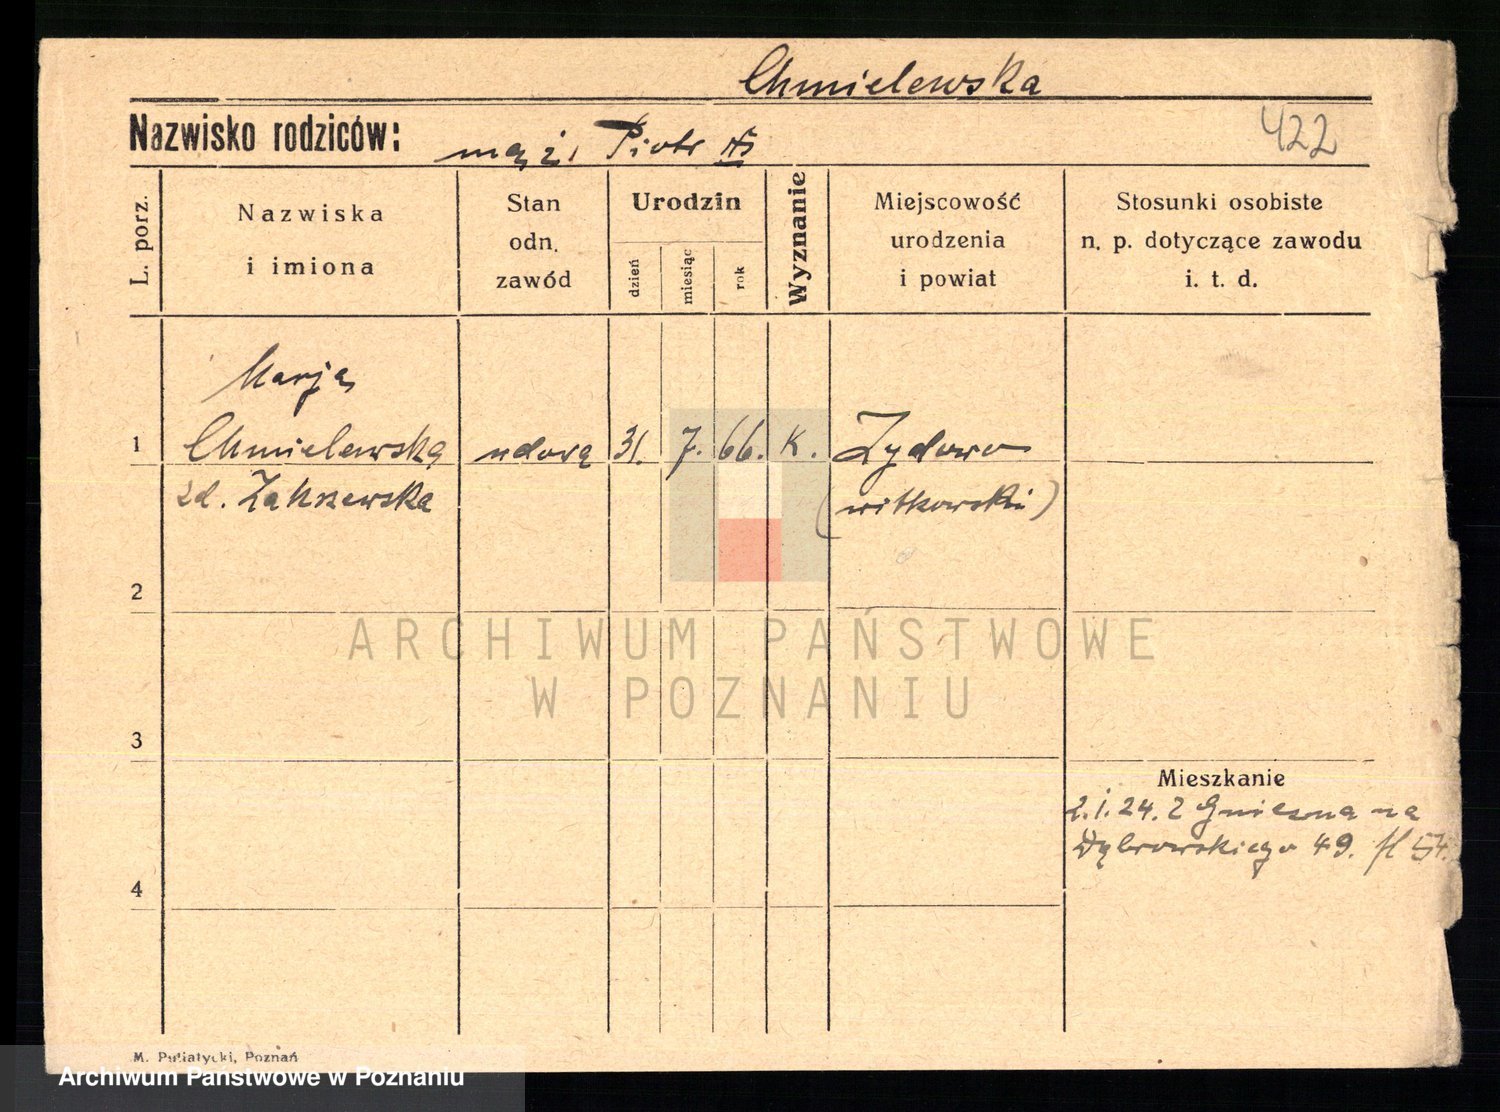 Chmielewska
Nazwisko rodziców: mąż. Piotr
422
L. porz.
Nazwiska
i imiona
Stan
odn.
zawód
Urodzin
dzień
miesiąc
rok
Wyznanie
Miejscowość
urodzenia
i powiat
Stosunki osobiste
n. p. dotyczące zawodu
i. t. d.
Marja
1 Chmielewska wdowa 31. 7. 66. K. Żydowo
zd. Zakrzewska (witkowski)
2
ARCHIWUM PAŃSTWOWE
W POZNANIU
3
Mieszkanie
2.1.24. z Gniezna na
Dąbrowskiego 49. 54.
4
M. Putiatycki, Poznań
Archiwum Państwowe w Poznaniu